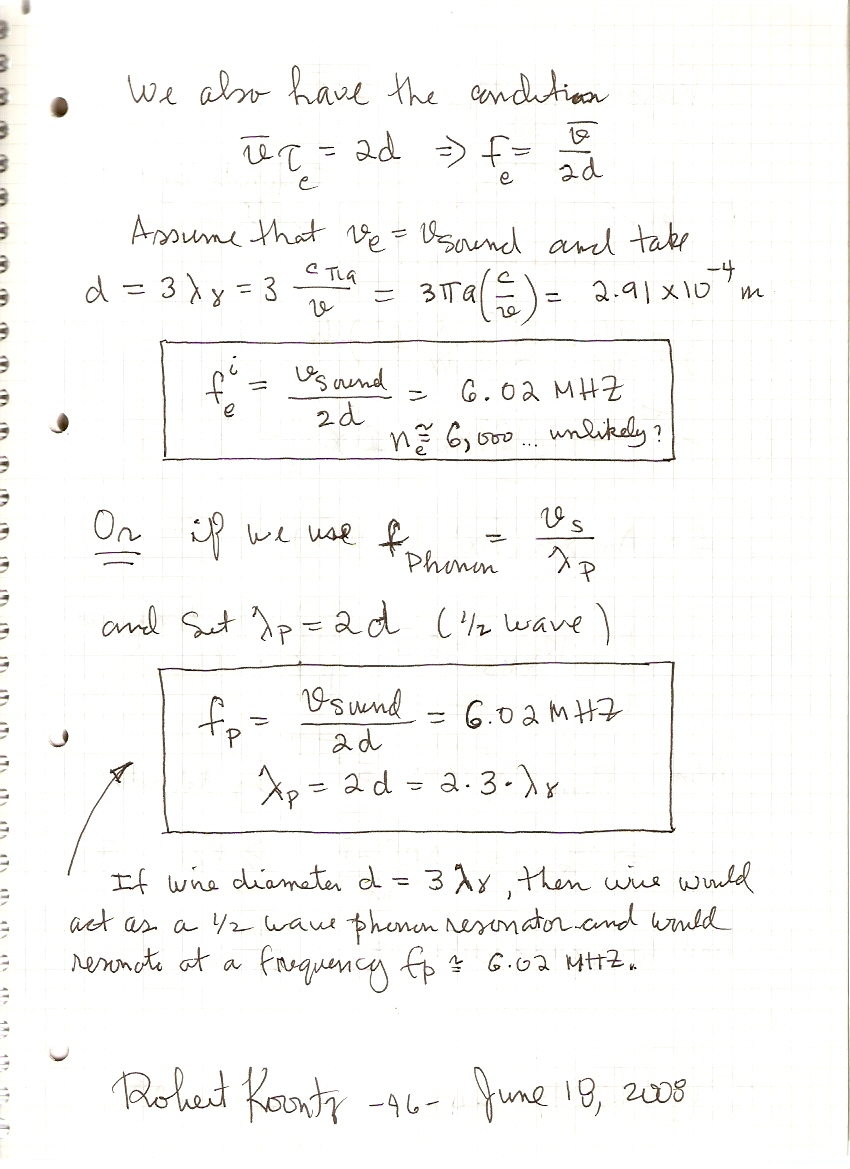 We also have the condition
v̅τ_e = 2d ⇒ f_e = v̅/2d
Assume that v_e = v_sound and take
d = 3λ_γ = 3 cπa/v = 3πa(c/v) = 2.91 x 10^-4 m
f_e^i = v_sound/2d = 6.02 MHZ
n_e ≅ 6,000 ... unlikely?
Or if we use f_phonon = v_s/λ_p
and set λ_p = 2d (1/2 wave)
f_p = v_sound/2d = 6.02 MHZ
λ_p = 2d = 2·3·λ_γ
If wire diameter d = 3λ_γ, then wire would
act as a 1/2 wave phonon resonator and would
resonate at a frequency f_p ≅ 6.02 MHZ.
Robert Koontz -46- June 18, 2008